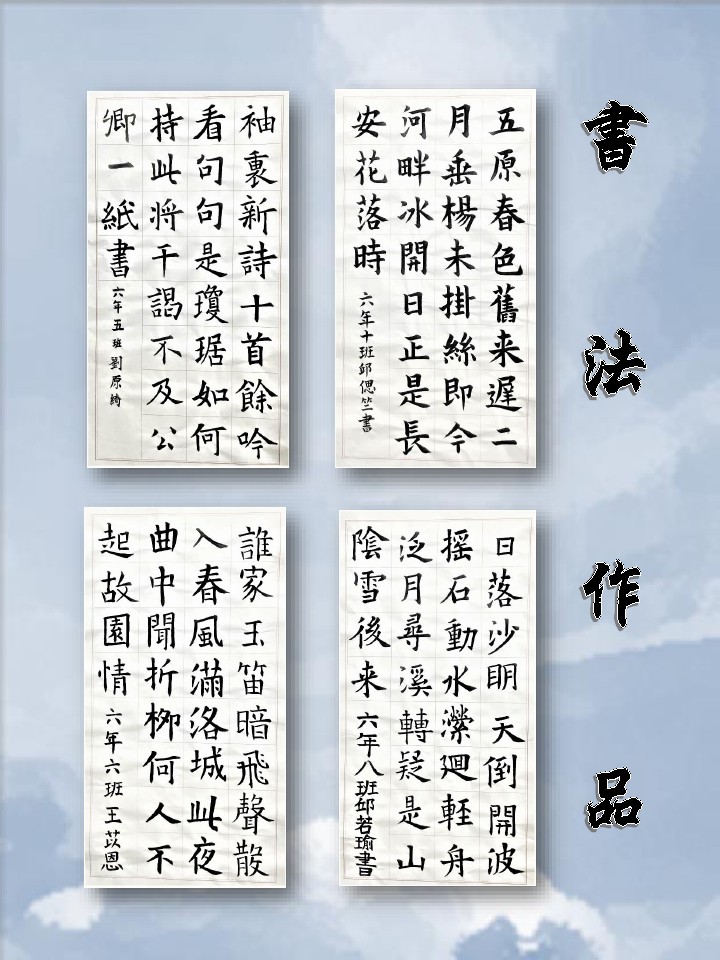 書法作品
五原春色舊来遲二
月垂楊未掛絲即今
河畔冰開日正是長
安花落時
六年十班邱偲竺書
袖裏新詩十首餘吟
看句句是瓊琚如何
持此將干謁不及公
卿一紙書
六年五班劉原綺
日落沙明天倒開波
摇石動水瀠迴輊舟
泛月尋溪轉疑是山
陰雪後来
六年八班邱若瑜書
誰家玉笛暗飛聲散
入春風滿洛城此夜
曲中聞折柳何人不
起故園情
六年六班王苡恩